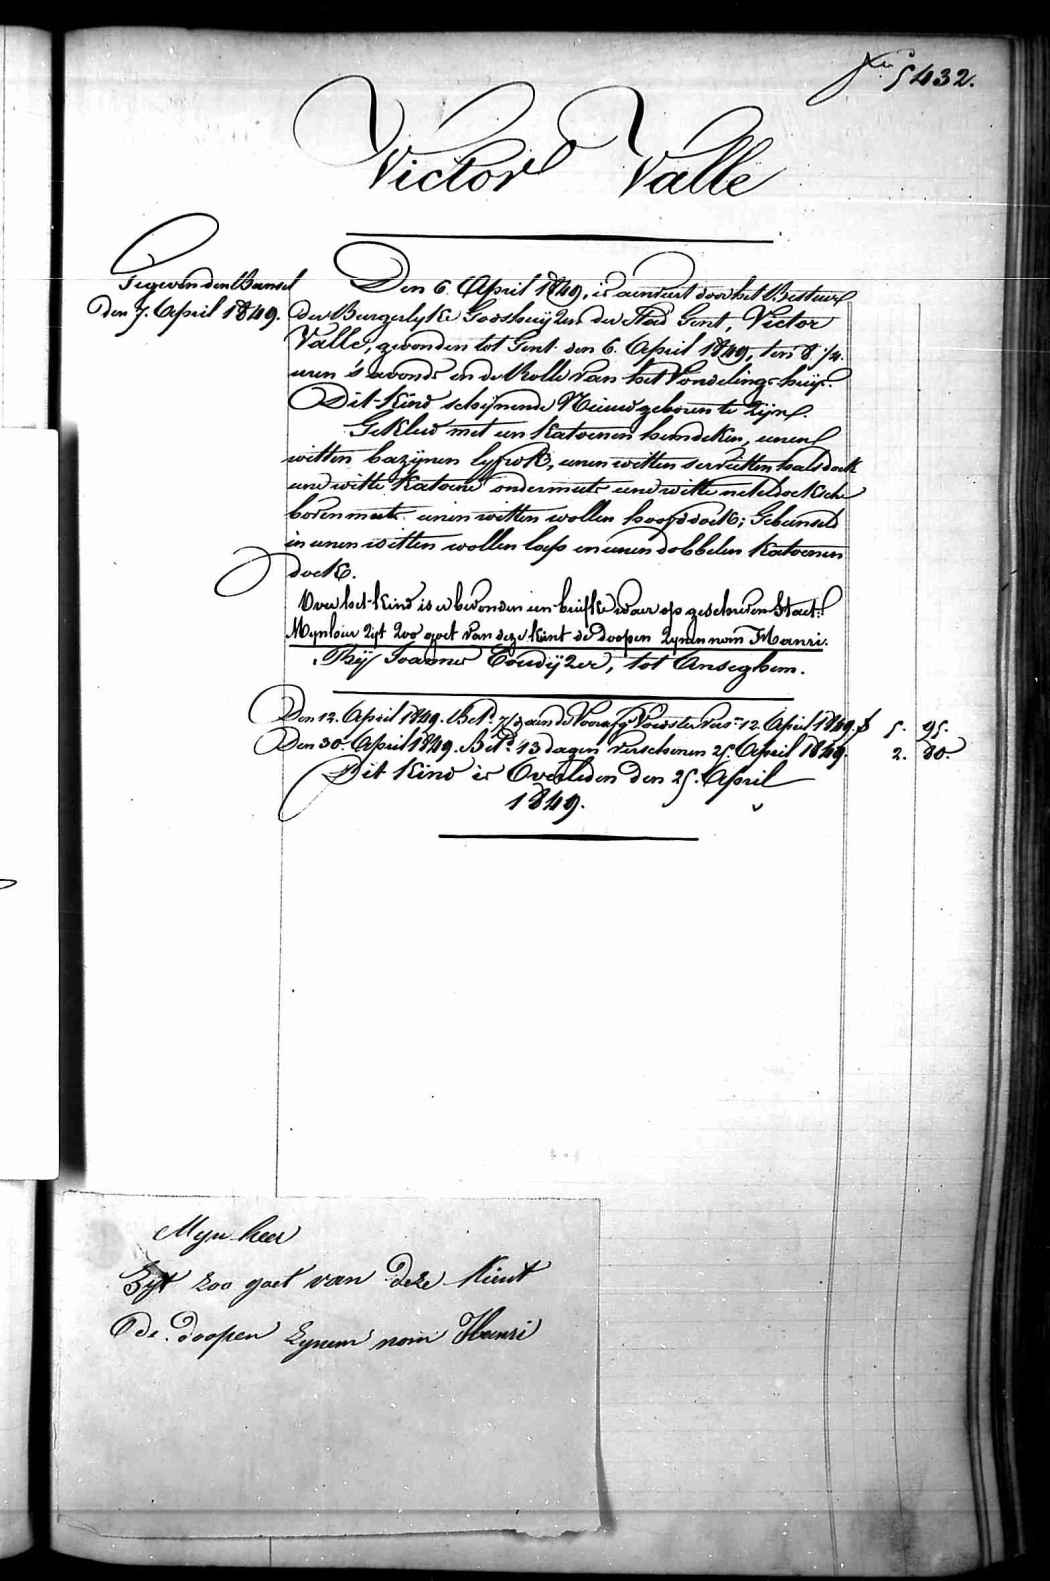 No 5432.
Victor Valle
Gegeven den Bunsel
den 7. April 1849.
Den 6. April 1849, is aenveert door het Bestuer
der Burgerlyke Godshuijzen der stad Gent, Victor
Valle, gevonden tot Gent den 6. April 1849, ten 8 1/4.
uren 's avonds in de Rolle van het Vondelingshuijs.
Dit kind schijnende Nieuwgeboren te zijn.
Gekleed met een katoenen hemdeken, eenen
witten bazijnen lyfrok, eenen witten servietten halsdoek
eene witte katoene ondermuts eene witte neteldoeksche
bovenmuts eenen witten wollen hoofddoek; Gebunseld
in eenen witten wollen laps en eenen dobbelen katoenen
doek.
Over het kind is er bevonden een briefke waer op geschreven staet:
Mynheer zijt zoo goet van deze kint de doopen zynen nom Hanri.
Bij Joanne Coudijzer, tot Anseghem.
Den 12. April 1849. Betd. 7/3 aen de Voorafge Voedster vers. 12. April 1849. f 5. 95.
Den 30. April 1849. Betd. 13 dagen verschenen 25. April 1849. 2. 80.
Dit kind is Overleden den 25. April
1849.
Myn heer
Zyt zoo goet van deze kint
de doopen zynen nom Hanri